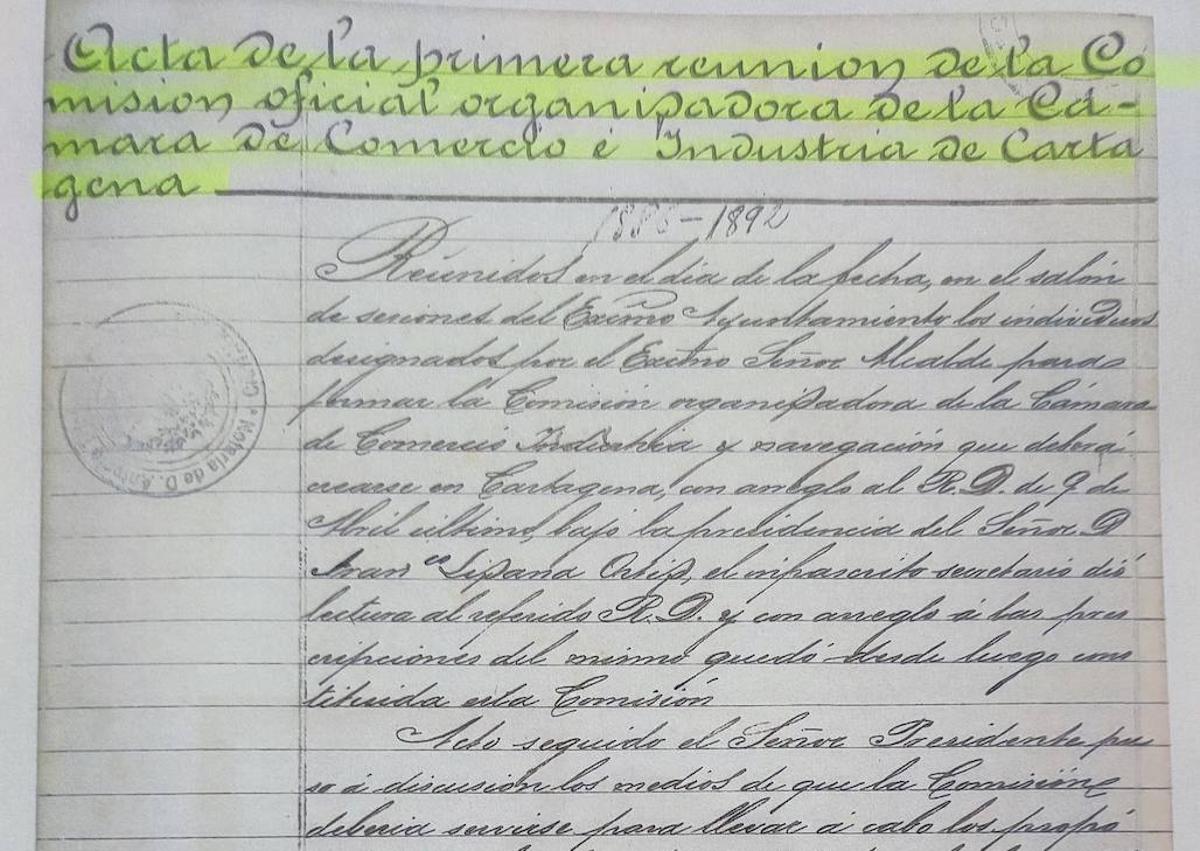 Acta de la primera reunion de la Co
mision oficial organizadora de la Cá-
mara de Comercio é Industria de Carta
gena
1886-1892
Reunidos en el día de la fecha, en el salón
de sesiones del Excmo Ayuntamiento los individuos
designados por el Excmo Señor Alcalde para
formar la Comisión organizadora de la Cámara
de Comercio Industria y navegación que deberá
crearse en Cartagena, con arreglo al R. D. de 9 de
Abril último, bajo la presidencia del Señor D
Franco Lizana Ortiz, el infrascrito secretario dió
lectura al referido R. D. y con arreglo á las pres
cripciones del mismo quedó desde luego cons
tituida esta Comisión
Acto seguido el Señor Presidente pu
so á discusion los medios de que la Comisión
deberia servirse para llevar á cabo los propó
Notaría de D. Antonio